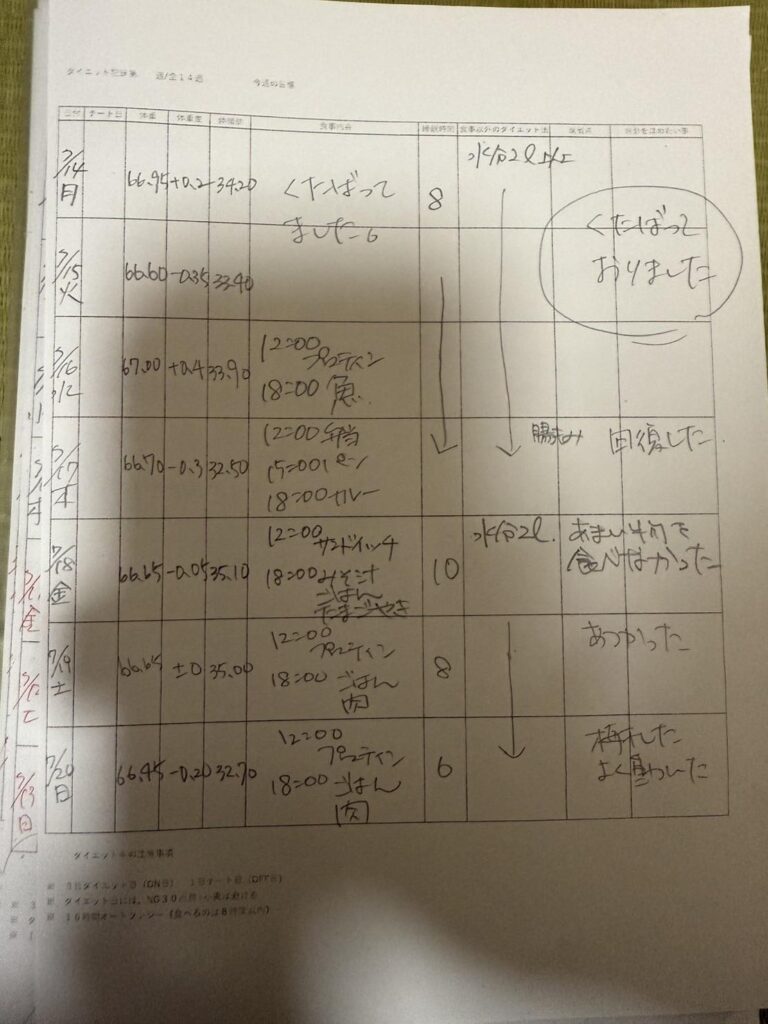 ダイエット記録表 週/全14週 今週の目標
日付 チート日 体重 体重差 体脂肪 食事内容 睡眠時間 食事以外のダイエット法
7/14 月 66.95 +0.2 34.20 くたばって 8 水分2l以上 くたばって
ました。 おりました
7/15 火 66.60 -0.35 33.40
7/16 水 67.00 +0.4 33.90 12:00
プロティン
18:00 魚
7/17 木 66.70 -0.3 32.50 12:00 弁当 回復した
15:00
18:00 カレー
7/18 金 66.65 -0.05 35.10 12:00 10 水分2l. あまい物を
サンドイッチ 食べなかった
18:00 みそ汁
ごはん
たまごやき
7/19 土 66.65 ±0 35.00 12:00 8 あつかった
プロティン
18:00 ごはん
肉
7/20 日 66.45 -0.20 32.70 12:00 6
プロティン よく
18:00 ごはん
肉
7/11 金
7/12 土
7/13 日
ダイエット中の注意事項
※ 6日ダイエット日(ON日) 1日チート日(OFF日)
※ ダイエット日には、NG30
※ 16時間オートファジー(食べるのは8時間以内)